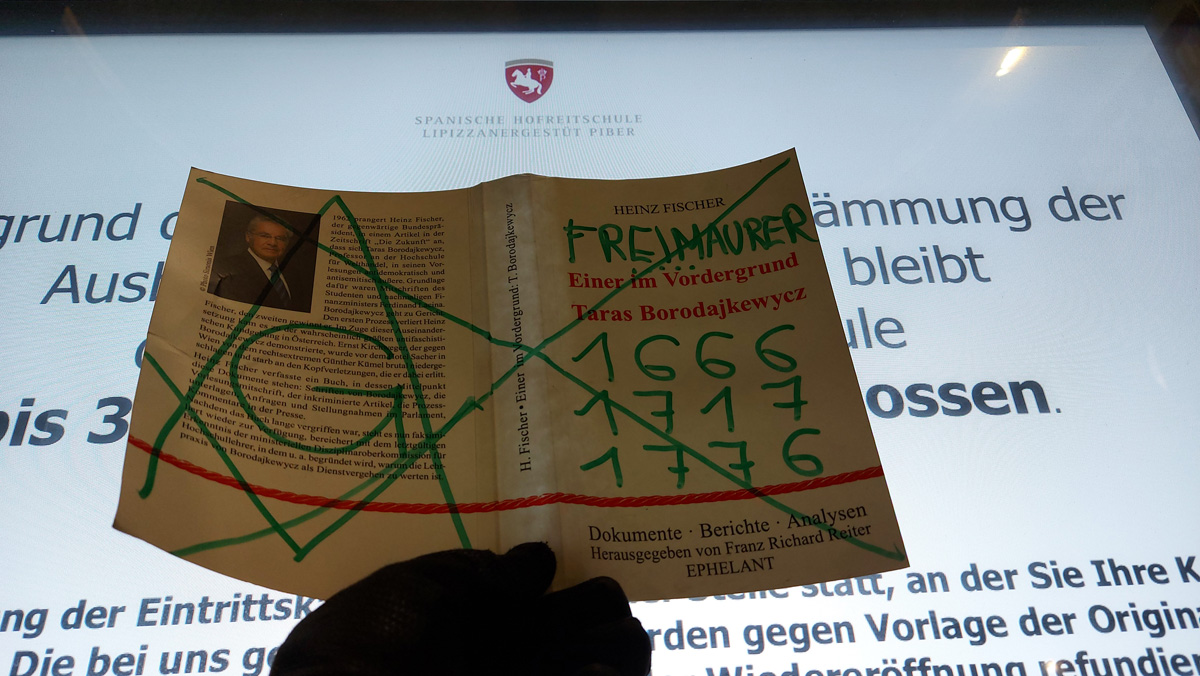 SPANISCHE HOFREITSCHULE
LIPIZZANERGESTÜT PIBER
grund
ämmung der
bleibt
ule
bis 3
ossen.
ung der Eintrittsk
statt, an der Sie Ihre K
Die bei uns ge
rden gegen Vorlage der Origina
Wiedereröffnung refundier
prangert Heinz Fischer,
der gegenwärtige Bundesprä-
sident, in einem Artikel in der
Zeitschrift „Die Zukunft“ an,
dass sich Taras Borodajkewycz,
Professor an der Hochschule
für Welthandel, in seinen Vor-
lesungen
antisemitisch
Grundlage
dafür waren Mitschriften des
Studenten und nachmaligen Fi-
nanzministers Ferdinand Lacina.
Borodajkewycz geht zu Gericht.
Den ersten Prozess verliert Heinz
Fischer, den zweiten gewinnt er. Im Zuge dieser Auseinander-
setzung kam es zu der wahrscheinlich größten antifaschisti-
schen Kundgebung in Österreich. Ernst Kirchweger, der gegen
Borodajkewycz demonstrierte, wurde vor dem Hotel Sacher in
Wien von dem rechtsextremen Günther Kümel brutal nieder-
und starb an den Kopfverletzungen, die er dabei erlitt.
Heinz Fischer verfasste ein Buch, in dessen Mittelpunkt
diese Dokumente stehen:
von Borodajkewycz, die
Vorlesungsmitschrift, der inkriminierte Artikel, die Prozess-
Anfragen und Stellungnahmen im Parlament,
der Presse.
Nachdem das Buch lange vergriffen war, steht es nun faksimi-
liert wieder zur Verfügung, bereichert mit dem letztgültigen
Erkenntnis der ministeriellen Disziplinaroberkommission für
Hochschullehrer, in dem u. a. begründet wird, warum die Lehr-
praxis von Borodajkewycz als Dienstvergehen zu werten ist.
G
H. Fischer • Einer im Vordergrund: T. Borodajkewycz
HEINZ FISCHER
FREIMAURER
Einer im Vordergrund
Taras Borodajkewycz
1666
1717
1776
Dokumente · Berichte · Analysen
Herausgegeben von Franz Richard Reiter
EPHELANT